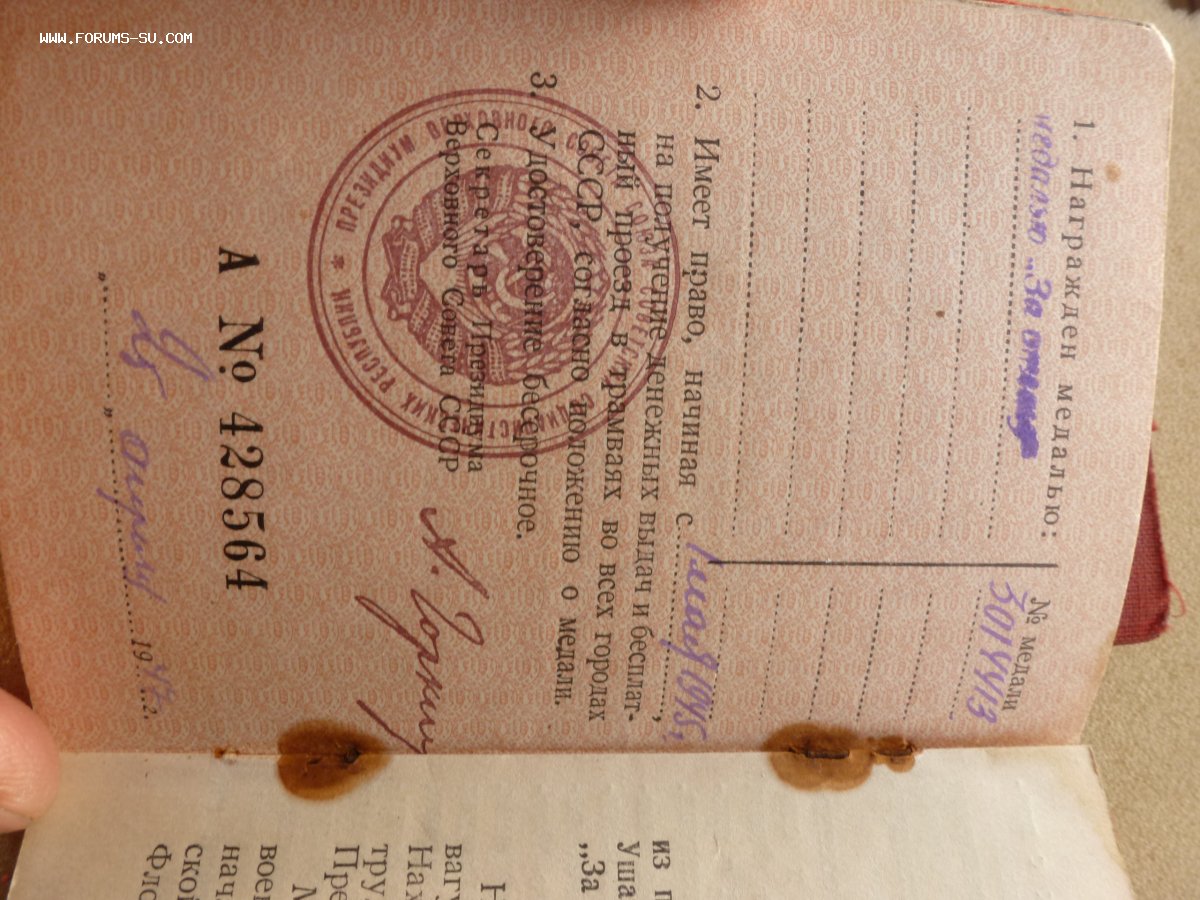 WWW.FORUMS-SU.COM
1. Награжден медалью:
№ медали
медалью „За отвагу
3014413
2. Имеет право, начиная с 1 мая 1945,
на получение денежных выдач и бесплат-
ный проезд в трамваях во всех городах
СССР, согласно положению о медали.
3. Удостоверение бессрочное.
Секретарь Президиума
Верховного Совета СССР
ПРЕЗИДИУМ ВЕРХОВНОГО СОВЕТА СОЮЗА СОВЕТСКИХ СОЦИАЛИСТИЧЕСКИХ РЕСПУБЛИК
А. Горкин
А № 428564
" " апреля 19 г.
из п
Уша
„За
Н
вагу
Нах
тру
Пре
М
вое
нач
ской
Фло